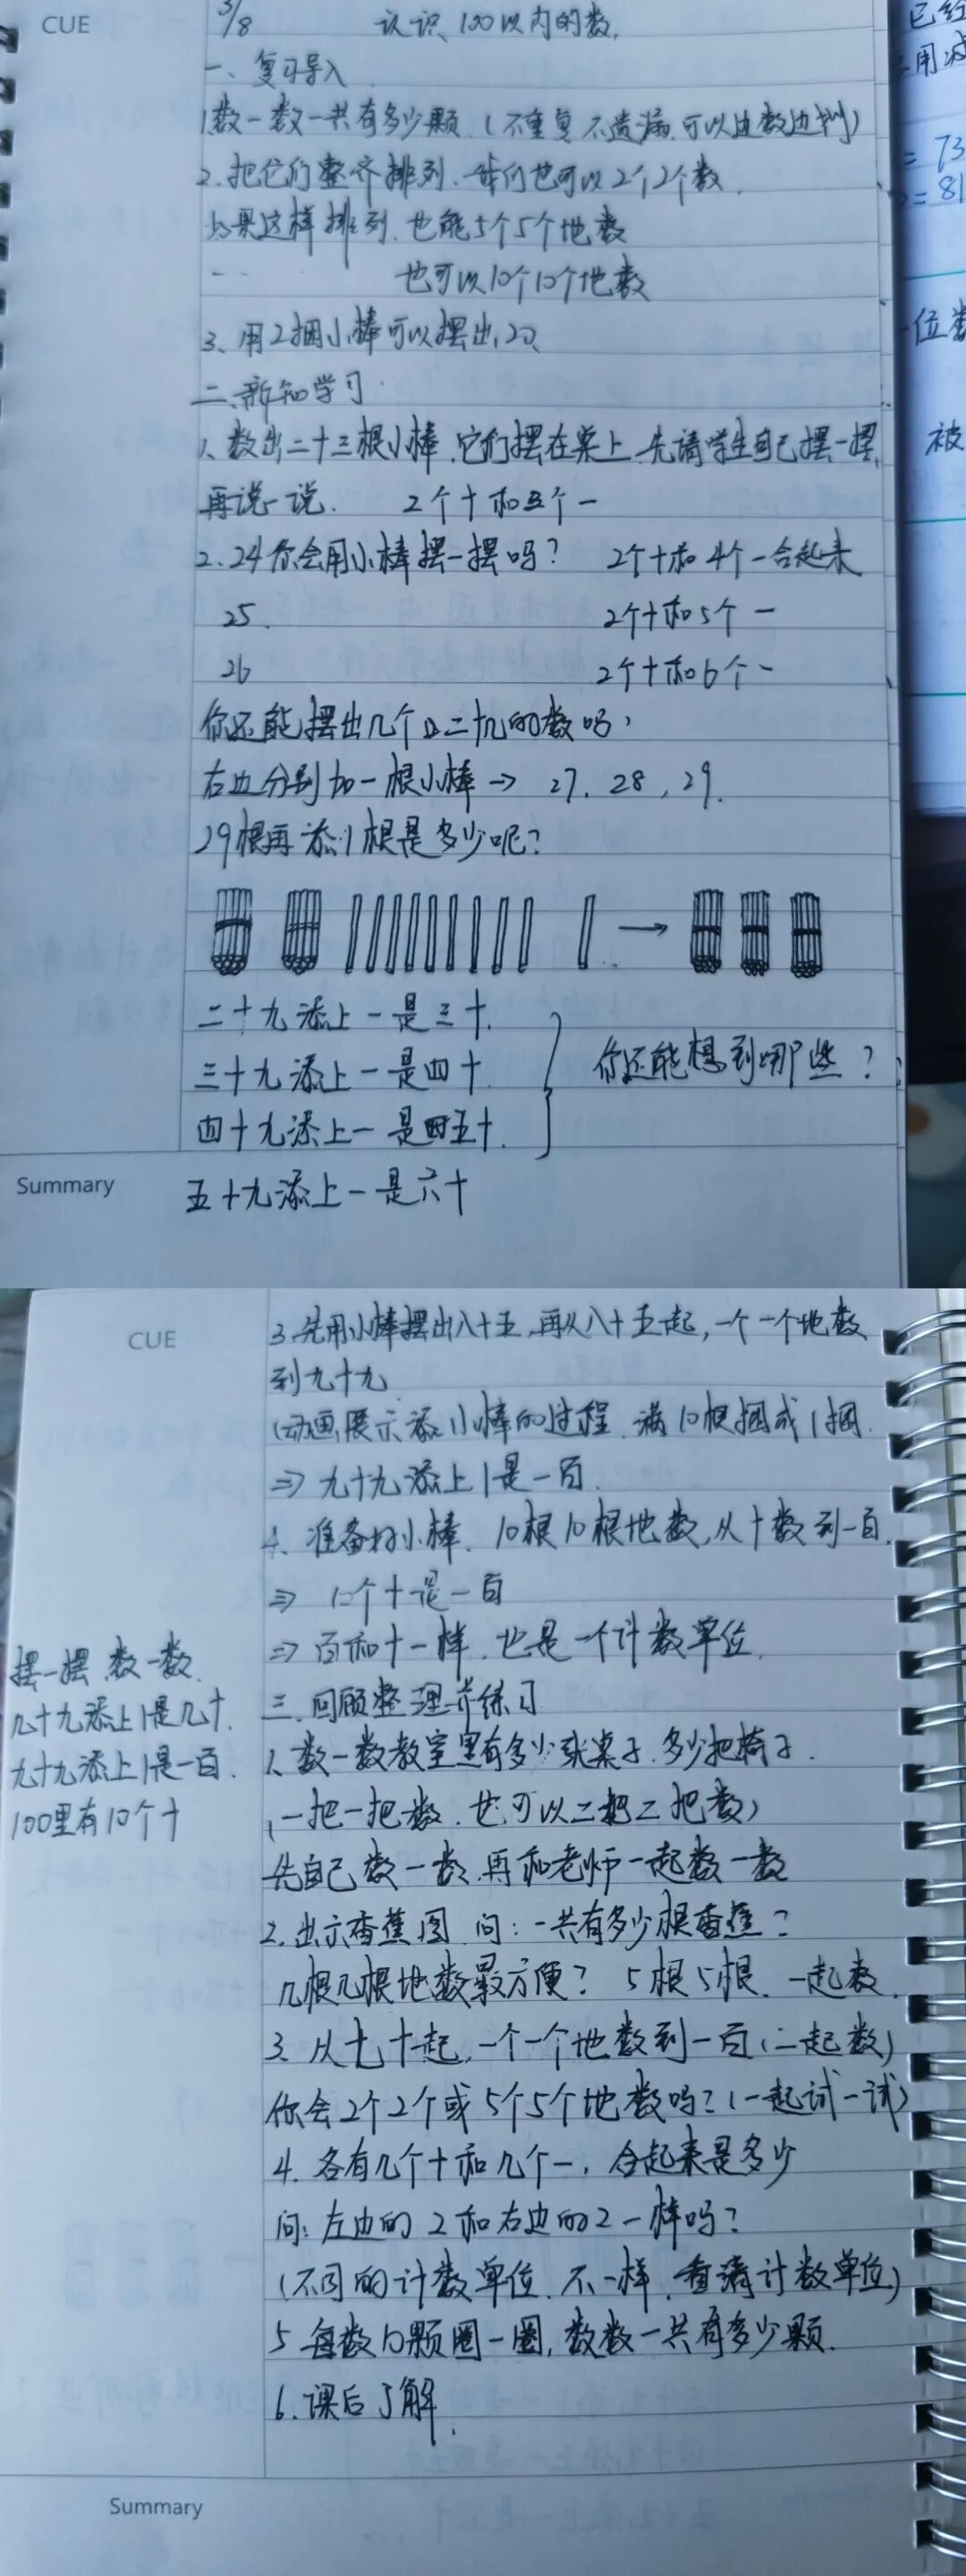 CUE
3/8 认识100以内的数.
一、复习导入
1.数一数一共有多少颗(不重复不遗漏.可以边数边划)
2.把它们整齐排列.我们也可以2个2个数.
如果这样排列.也能5个5个地数
也可以10个10个地数
3、用2捆小棒可以摆出20、
二、新知学习
1、数出二十三根小棒.它们摆在桌上.先请学生自己摆一摆,
再说一说. 2个十和三个一
2.24你会用小棒摆一摆吗? 2个十和4个一合起来
25. 2个十和5个一
26 2个十和6个一
你还能摆出几个二十几的数吗,
右边分别加一根小棒→ 27、28,29.
29根再添1根是多少呢?
→
二十九添上一是三十.
三十九添上一是四十.
你还能想到哪些?
四十九添上一是五十.
Summary
五十九添上一是六十
已经
用减
= 73
= 81
位数
被
CUE
3.先用小棒摆出八十五,再从八十五起,一个一个地数
到九十九
(动画展示添小棒的过程.满10根捆成1捆.
⇒ 九十九添上1是一百.
4、准备好小棒.10根10根地数,从十数到一百.
⇒ 10个十是一百
⇒ 百和十一样.也是一个计数单位.
摆一摆、数一数.
几十九添上1是几十.
九十九添上1是一百.
100里有10个十
三、回顾整理并练习
1、数一数教室里有多少张桌子.多少把椅子.
(一把一把数.也可以二把二把数)
先自己数一数,再和老师一起数一数
2.出示香蕉图 问:一共有多少根香蕉?
几根几根地数最方便? 5根5根.一起数.
3、从七十起,一个一个地数到一百(一起数)
你会2个2个或5个5个地数吗?(一起试一试)
4.各有几个十和几个一,合起来是多少
问:左边的2和右边的2一样吗?
(不同的计数单位.不一样.看清计数单位)
5 每数10颗圈一圈,数数一共有多少颗.
6.课后了解.
Summary